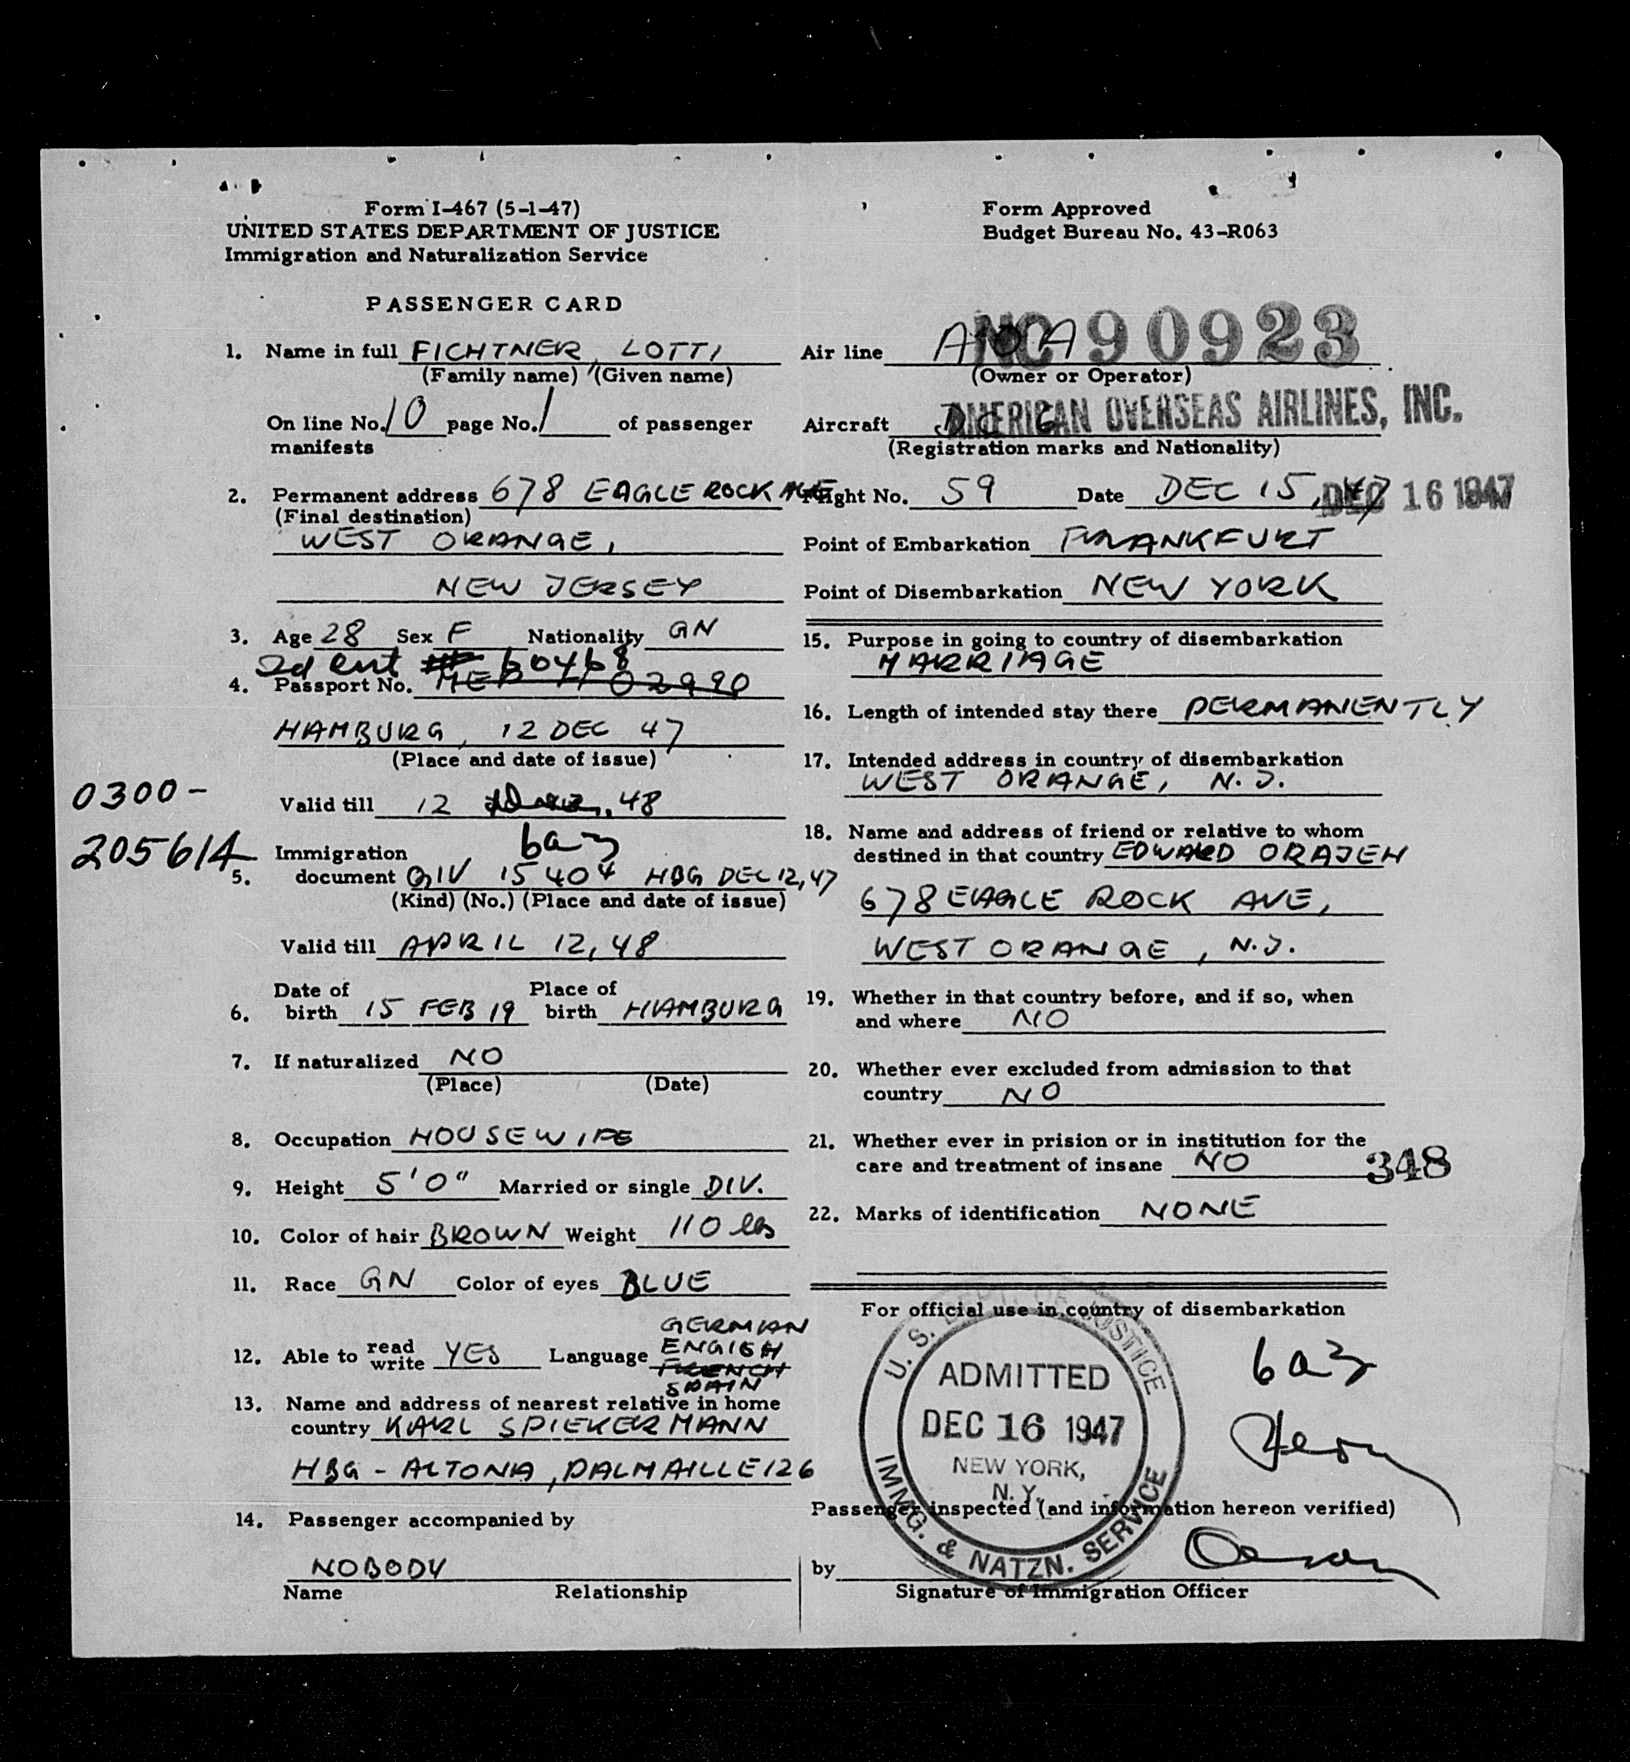 Form I-467 (5-1-47)
UNITED STATES DEPARTMENT OF JUSTICE
Immigration and Naturalization Service
PASSENGER CARD
1. Name in full FICHTNER, LOTTI
(Family name) (Given name)
On line No. 10 page No. 1 of passenger
manifests
2. Permanent address 678 EAGLE ROCK AVE
(Final destination)
WEST ORANGE,
NEW JERSEY
3. Age 28 Sex F Nationality GN
60468
4. Passport No. 02990
HAMBURG, 12 DEC 47
(Place and date of issue)
0300-
Valid till 12 48
205614
Immigration
5. document QIV 15404 HBG DEC 12, 47
(Kind) (No.) (Place and date of issue)
Valid till APRIL 12, 48
Date of Place of
6. birth 15 FEB 19 birth HAMBURG
7. If naturalized NO
(Place) (Date)
8. Occupation HOUSEWIFE
9. Height 5'0" Married or single DIV.
10. Color of hair BROWN Weight 110 lbs
11. Race GN Color of eyes BLUE
GERMAN
12. Able to read write YES Language ENGISH
FRENCH
SPAIN
13. Name and address of nearest relative in home
country KARL SPIEKERMANN
HBG - ALTONA, PALMAILLE 126
14. Passenger accompanied by
NOBODY
Name Relationship
Form Approved
Budget Bureau No. 43-R063
NC 90923
Air line AOA
(Owner or Operator)
AMERICAN OVERSEAS AIRLINES, INC.
Aircraft DC 6
(Registration marks and Nationality)
Flight No. 59 Date DEC 15, 47 DEC 16 1947
Point of Embarkation FRANKFURT
Point of Disembarkation NEW YORK
15. Purpose in going to country of disembarkation
MARRIAGE
16. Length of intended stay there PERMANENTLY
17. Intended address in country of disembarkation
WEST ORANGE, N.J.
18. Name and address of friend or relative to whom
destined in that country EDWARD ORAJEH
678 EAGLE ROCK AVE,
WEST ORANGE, N.J.
19. Whether in that country before, and if so, when
and where NO
20. Whether ever excluded from admission to that
country NO
21. Whether ever in prision or in institution for the
care and treatment of insane NO
348
22. Marks of identification NONE
For official use in country of disembarkation
U. S. DEPT. OF JUSTICE
ADMITTED
DEC 16 1947
NEW YORK,
N. Y.
IMMG. & NATZN. SERVICE
Passenger inspected (and information hereon verified)
by
Signature of Immigration Officer